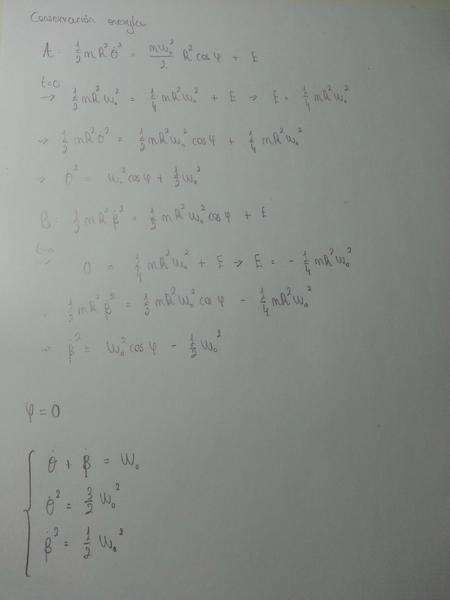 Conservación energía
A: 1/2 mR²θ̇² = mω₀²/2 R² cosφ + E
t=0
→ 1/2 mR²ω₀² = 1/4 mR²ω₀² + E → E = 1/4 mR²ω₀²
→ 1/2 mR²θ̇² = 1/2 mR²ω₀² cosφ + 1/4 mR²ω₀²
→ θ̇² = ω₀² cosφ + 1/2 ω₀²
B: 1/2 mR²β̇² = 1/2 mR²ω₀² cosφ + E
t=0
→ 0 = 1/4 mR²ω₀² + E → E = - 1/4 mR²ω₀²
1/2 mR²β̇² = 1/2 mR²ω₀² cosφ - 1/4 mR²ω₀²
→ β̇² = ω₀² cosφ - 1/2 ω₀²
φ = 0
θ̇ + β̇ = ω₀
θ̇² = 3/2 ω₀²
β̇² = 1/2 ω₀²